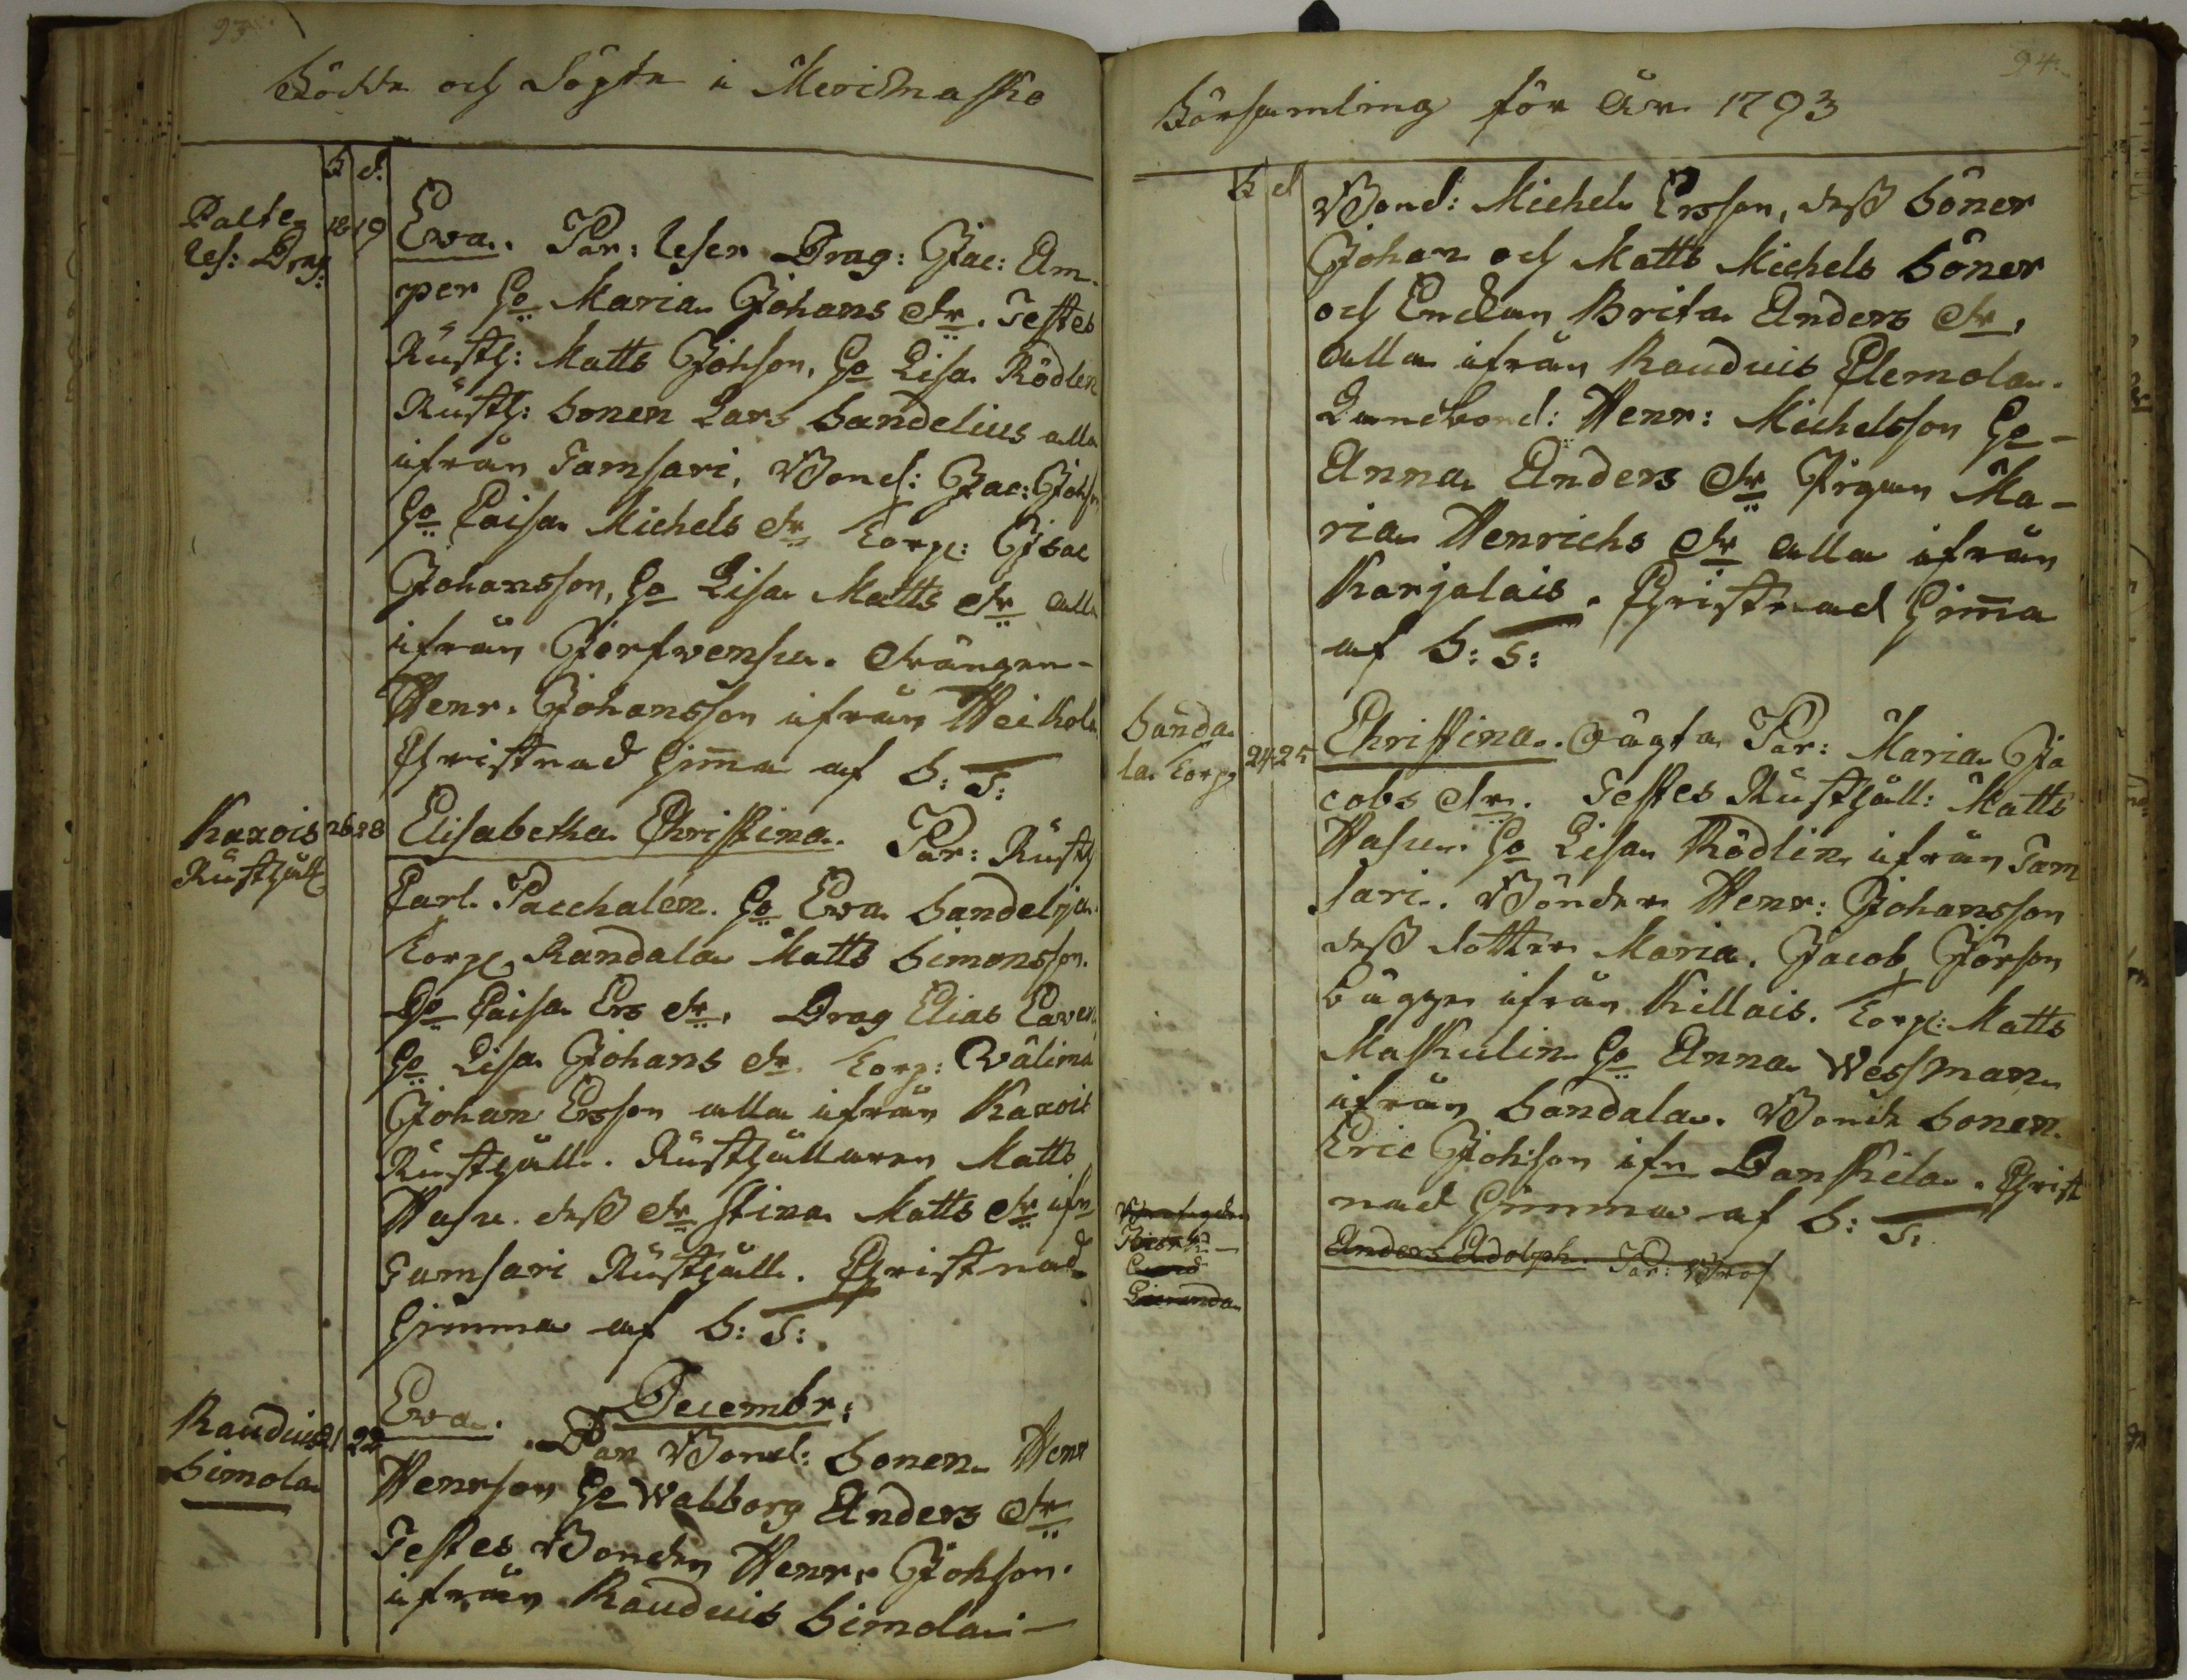 93
Födde och Dögte i Merimasko
F d.
Palte
Res: Drag:
18 19
Ewa. Par: Reser Drag: Jac: Am-
per Ho Maria Johans dr. Testes
Rusth: Matts Johson, Ho Lisa Rödlin
Rusth: Sonen Lars Sandelius alla
ifrån Tamsari, Bond: Jac: Johs
Ho Caisa Michels dr Torp: Isac
Johansson, Ho Lisa Matts dr alla
ifrån Jerfwensu. Drängen
Henr. Johansson ifrån Heikola
Christnad Hima af S: T:
Karois
Rusthåll
26 28
Elisabetha Christina. Par: Rusth
Carl Pacchalen. Ho Ewa Sandelja
Torp Randala Matts Simonsson.
Ho Caisa Ers dr, Drag Elias Ewer
Ho Lisa Johans dr. Torp: Wälimä
Johan Ersson alla ifrån Karois
Rusthåll. Rusthållaren Matts
Hasu. dess dr Stina Matts dr ifn
Tamsari Rusthåll. Christnad
Himma af S: T:
Decembr:
Rauduis
Simola
21 22
Ewa. Par Bond: Sonen Henr
Henrson Ho Walborg Anders dr
Testes Bonden Henr. Johson
ifrån Rauduis Simola
94
Församling för År 1793
F d
Bond: Michel Ersson, dess Söner
Johan och Matts Michels Söner
och Enckan Brita Anders dr,
alla ifrån Rauduis Clemola.
Landbond: Henr: Michelsson Ho
Anna Anders dr Pigan Ma-
ria Henrichs dr alla ifrån
Karjalais. Christnad Hima
af S: T:
Sanda
la Torp
24 25
Christina. Oägta Par: Maria Ja
cobs dr. Testes Rusthåll: Matts
Hasu. Ho Lisa Rödlin ifrån Tam
sari. Bonden Henr: Johansson
dess dotter Maria. Jacob Jörson
bägge ifrån Killais. Torp: Matts
Maskulin Ho Anna Wessman
ifrån Sandala. Bonde Sonen
Eric Johson ifn Danskila. Christ
nad Himma af S: T:
Anders Adolph. Par: Prof